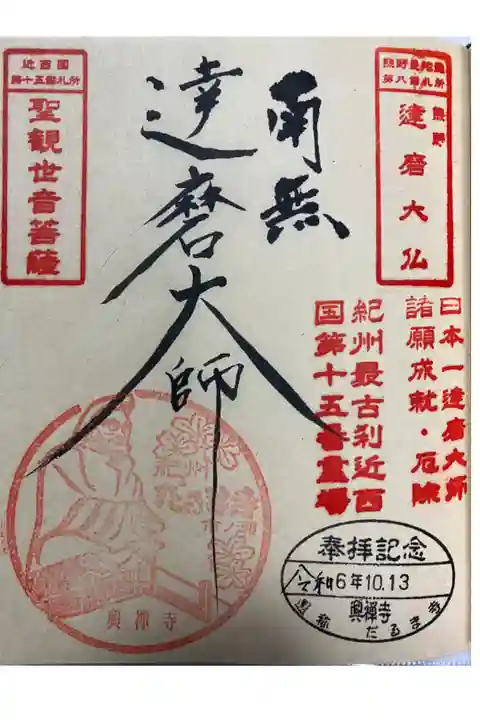 南無
達磨大師
熊野
達磨大仏
日本一達磨大師
諸願成就・厄除
紀州最古刹近西
国第十五番霊場
近西国
第十五番札所
聖観世音菩薩
奉拝記念
令和6年10.13
興禅寺
だるま寺
紀州
興禅寺